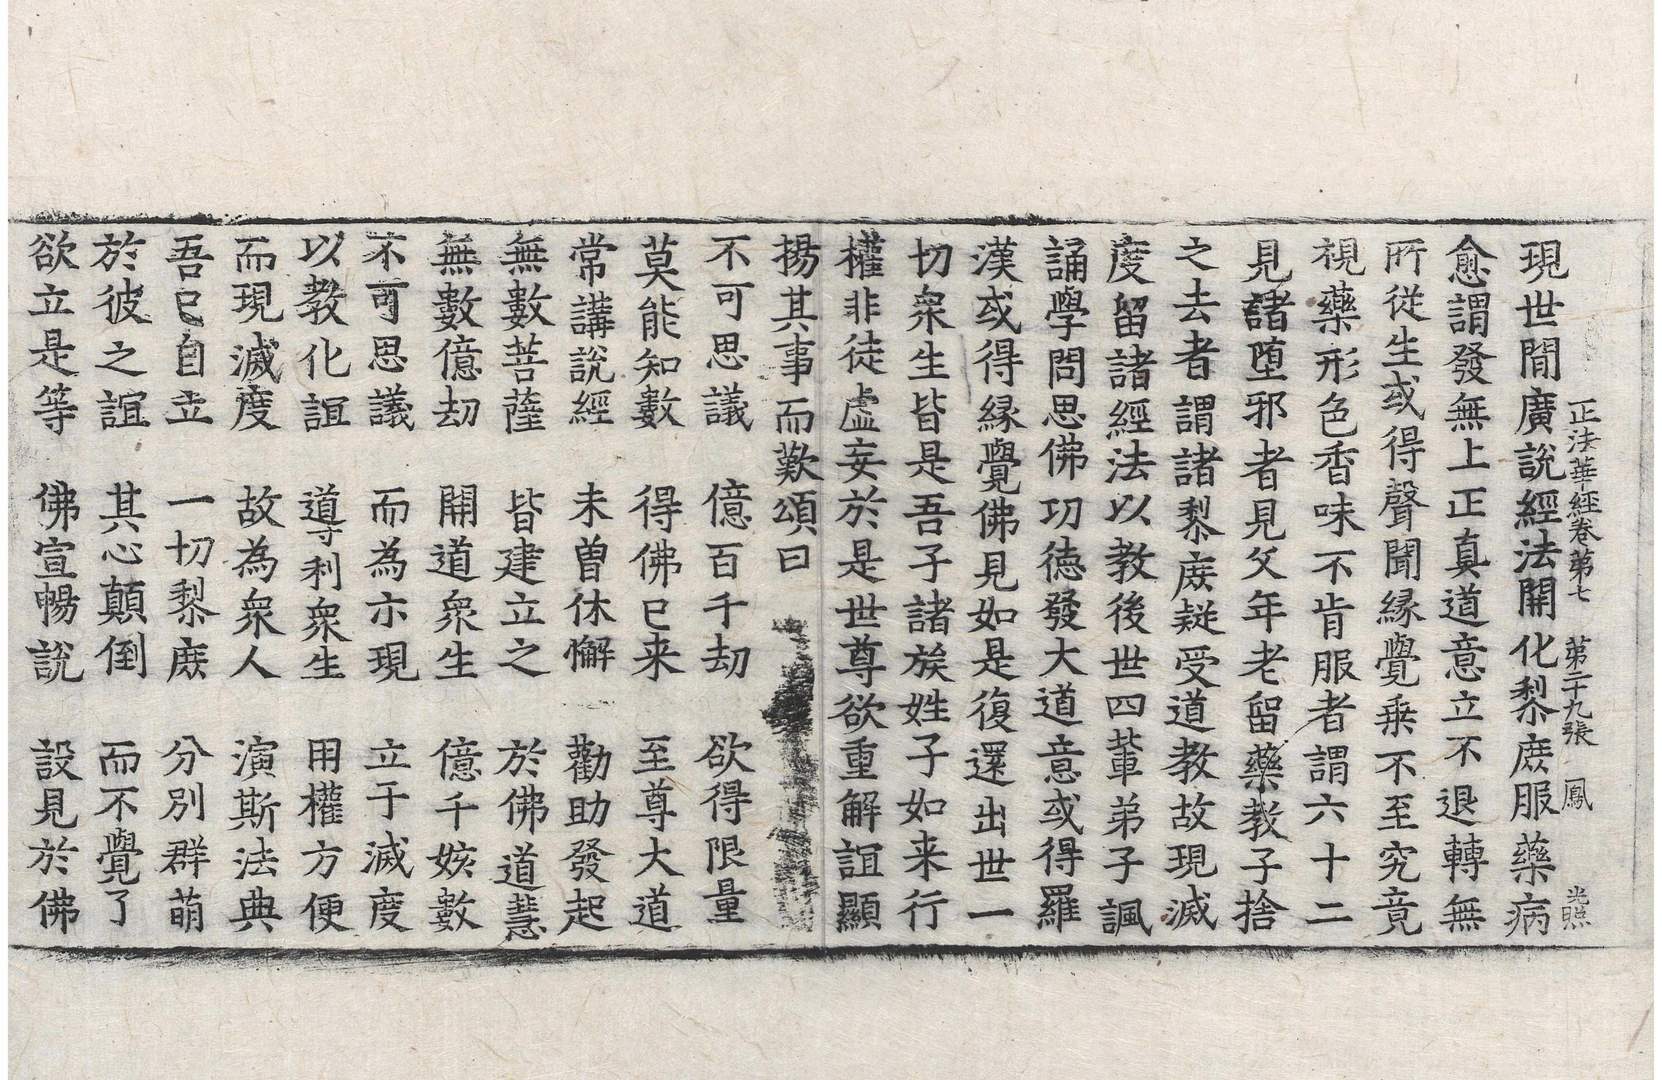 正法華經卷第七 第二十九張 鳳 光照
現世間廣說經法開化黎庶服藥病
愈謂發無上正真道意立不退轉無
所從生或得聲聞緣覺乗不至究竟
視藥形色香味不肯服者謂六十二
見諸堕邪者見父年老留藥教子捨
之去者謂諸黎庶疑受道教故現滅
度留諸經法以教後世四輩弟子諷
誦學問思佛功德發大道意或得羅
漢或得縁覺佛見如是復還出世一
切衆生皆是吾子諸族姓子如来行
權非徒虚妄於是世尊欲重解誼顯
揚其事而歎頌曰
不可思議 億百千劫 欲得限量
莫能知數 得佛已来 至尊大道
常講說經 未曽休懈 勸助發起
無數菩薩 皆建立之 於佛道慧
無數億劫 開道衆生 億千姟數
不可思議 而為示現 立于滅度
以教化誼 導利衆生 用權方便
而現滅度 故為衆人 演斯法典
吾已自立 一切黎庶 分别群萌
於彼之誼 其心顛倒 而不覺了
欲立是等 佛宣暢說 設見於佛